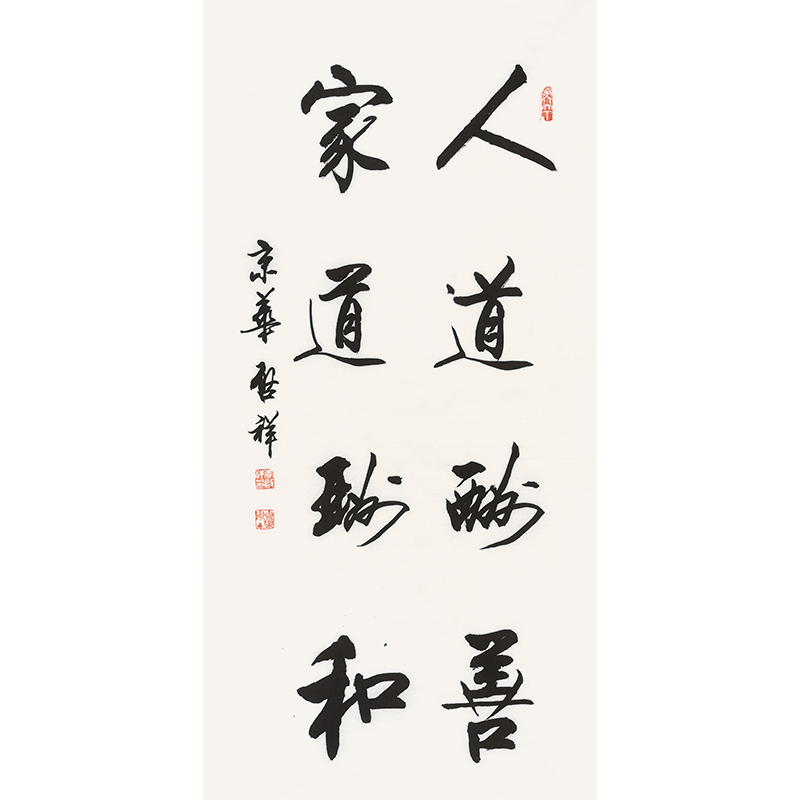 人道酬善
家道酬和
京華啓祥